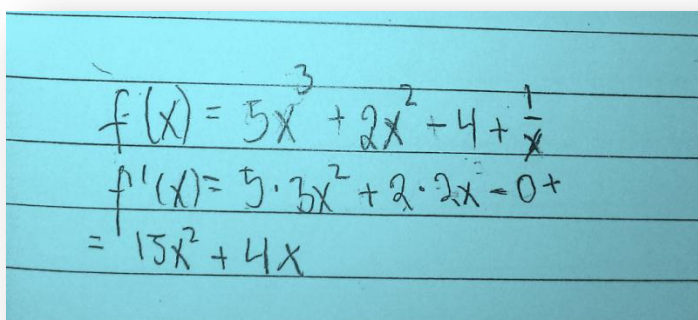 f(x) = 5x³ + 2x² - 4 + 1/x
f'(x) = 5·3x² + 2·2x - 0 +
= 15x² + 4x